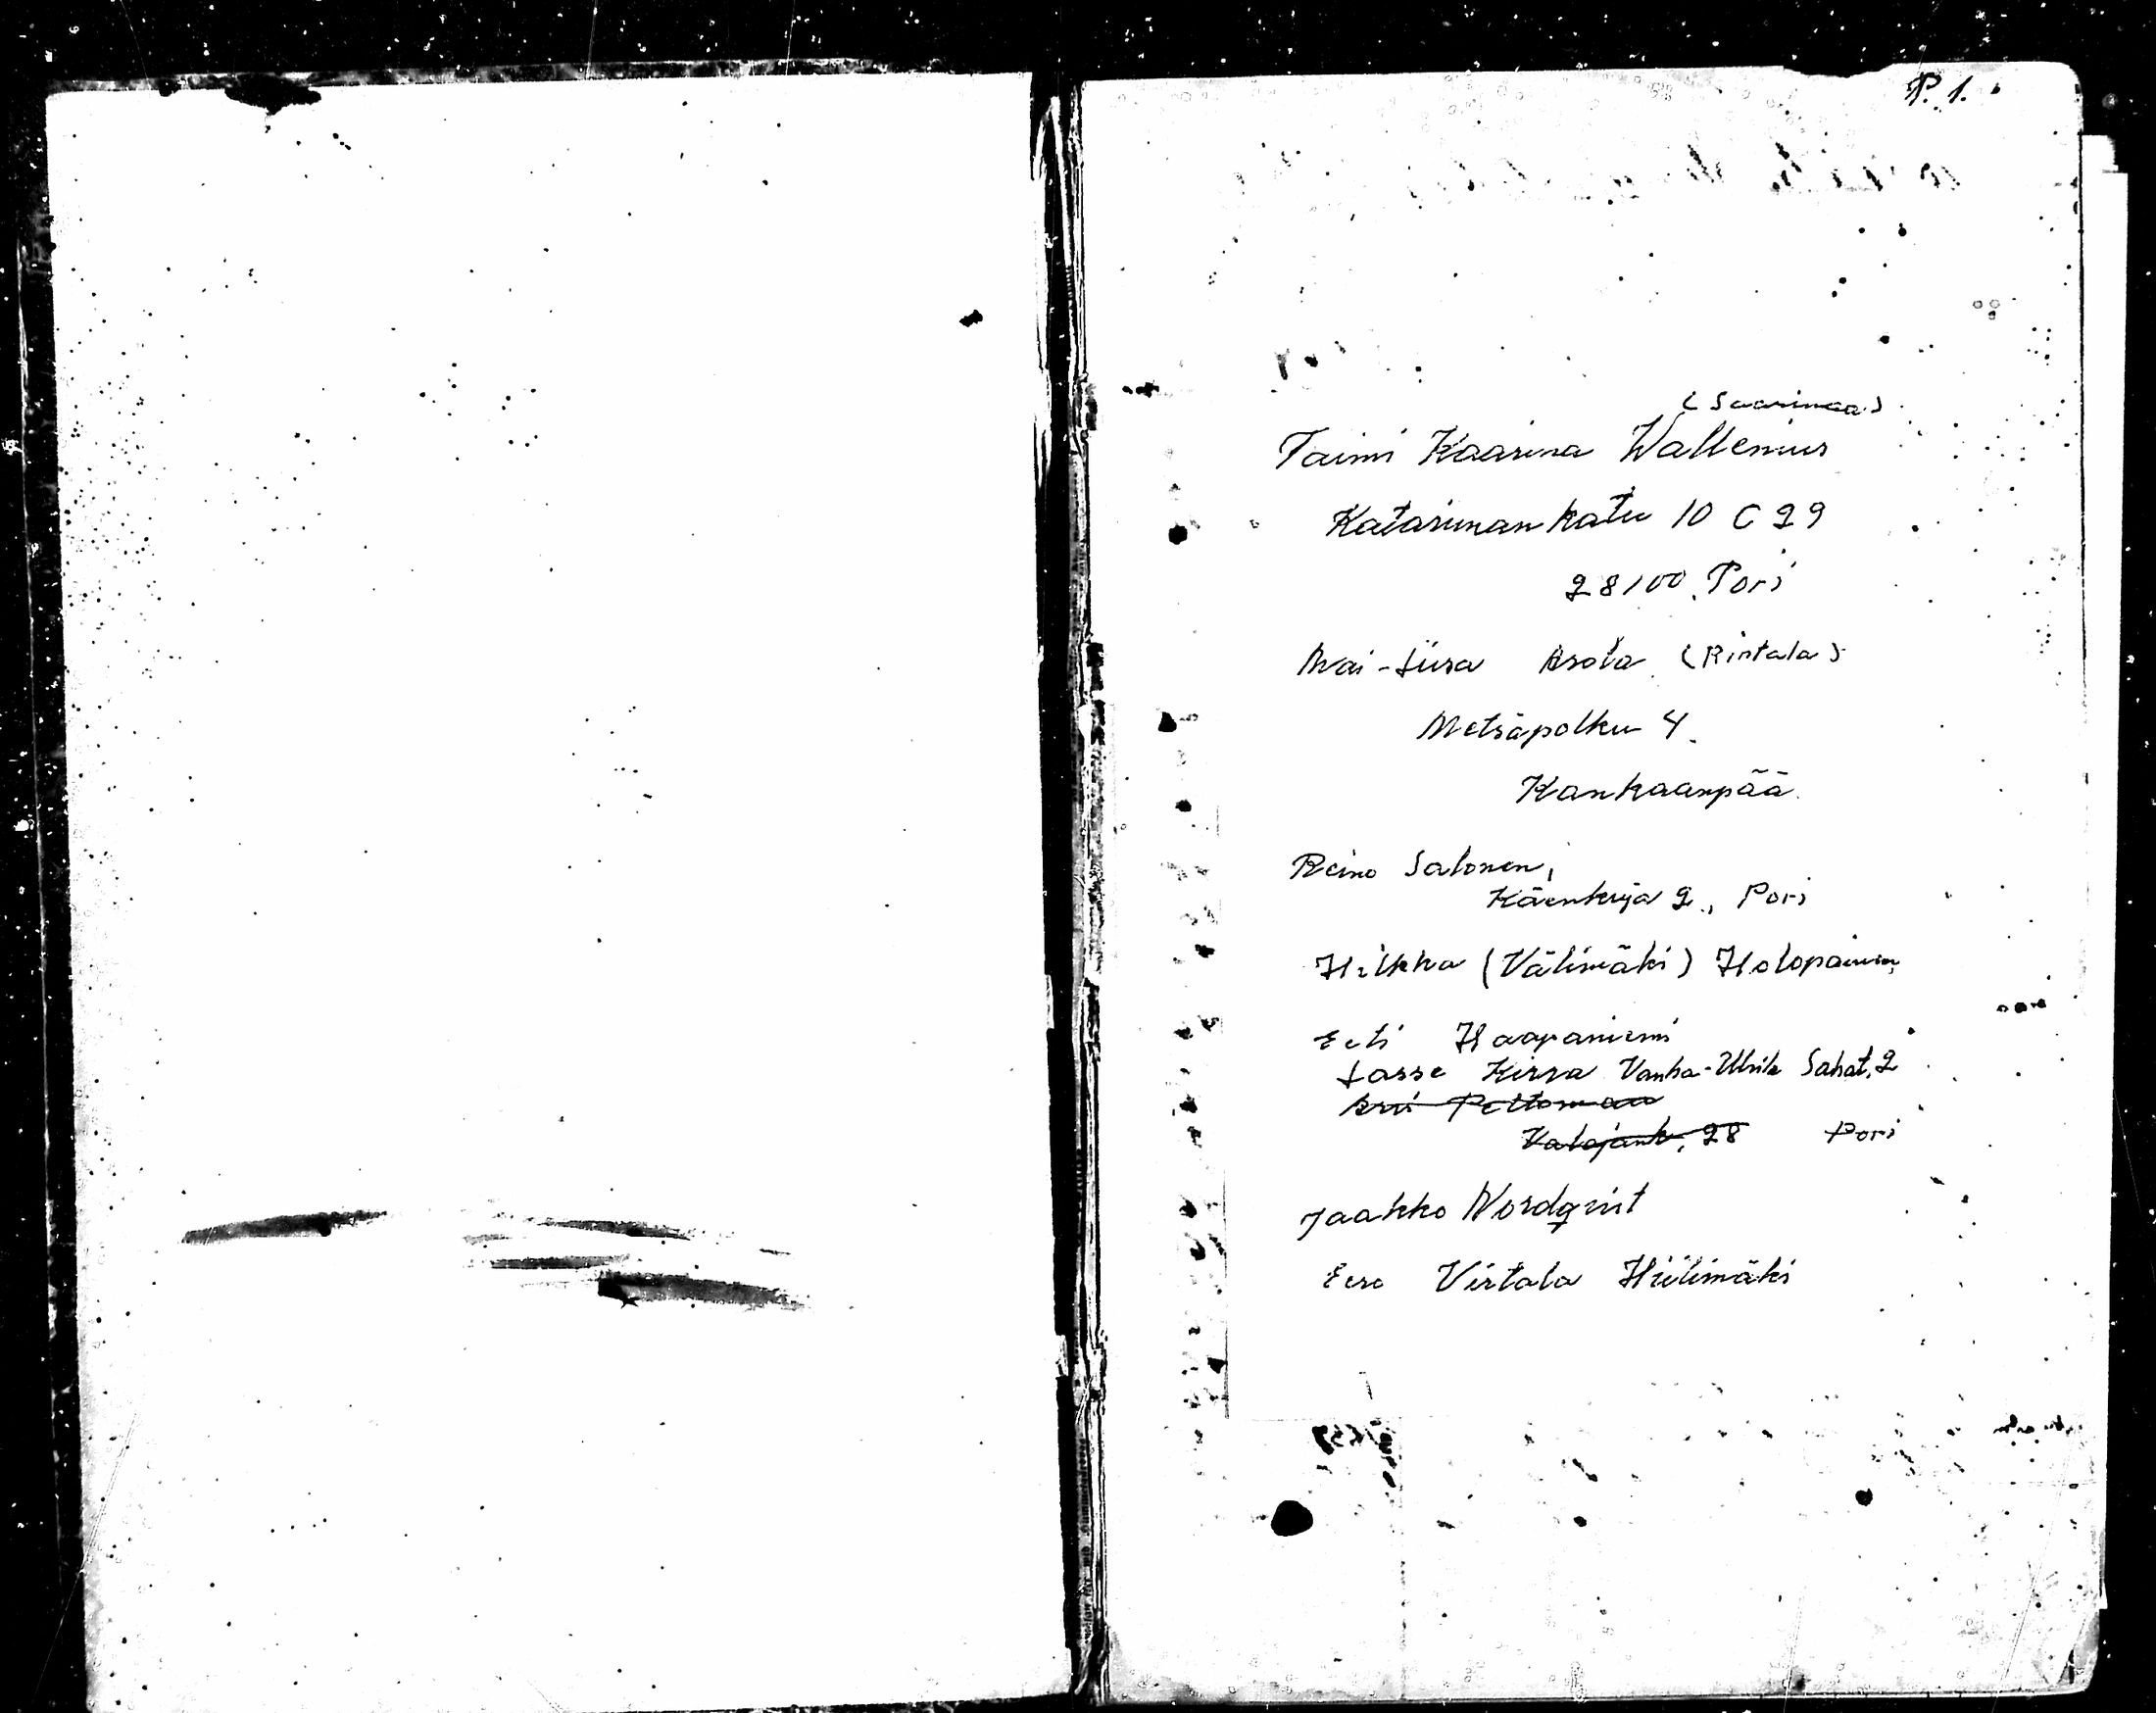 P. 1.
(Saarinen)
Taimi Kaarina Wallenius
Katariinankatu 10 C 29
28100 Pori
Mai-Liisa Asola (Rintala)
Metsäpolku 4.
Kankaanpää
Reino Salonen,
Käenkuja 2, Pori
Hilkka (Välimäki) Holopainen
Eeti Haapaniemi
Lasse Kirra Vanha-Ulvila Sahat. 2
Pori
Jaakko Nordqvist
Eero Virtala Hiilimäki